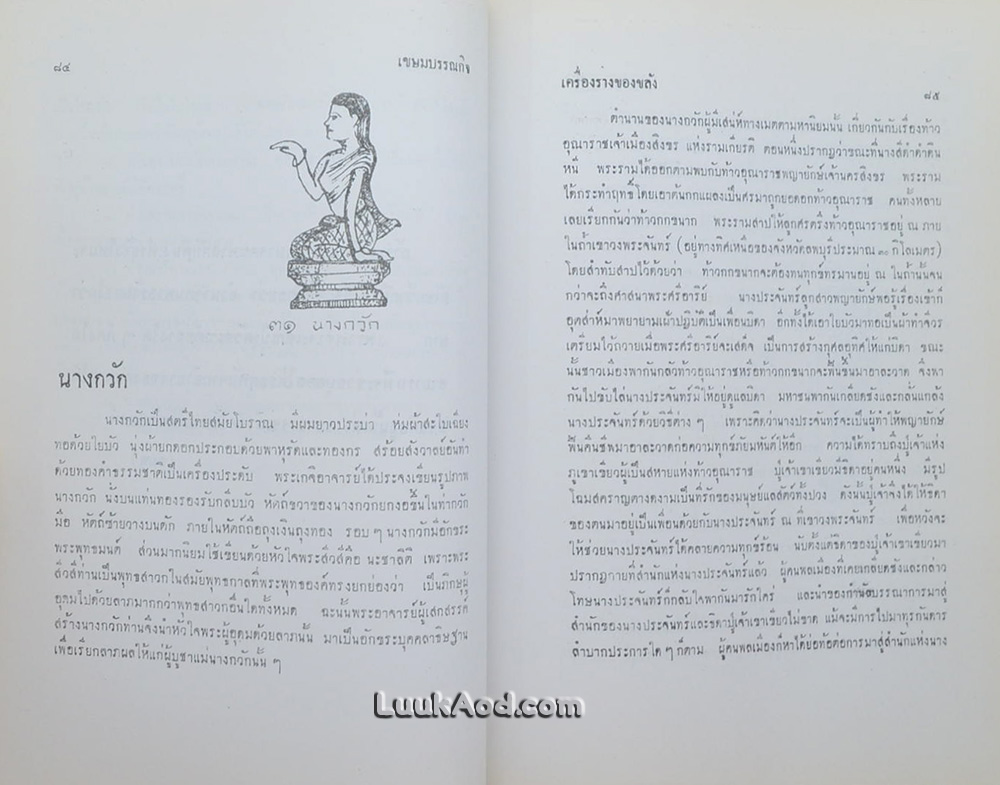 ๘๔
เขษมบรรณกิจ
๓๑ นางกวัก
นางกวัก
นางกวักเป็นสตรีไทยสมัยโบราณ มีผมยาวประบ่า ห่มผ้าสะไบเฉียง
ทอด้วยใยบัว นุ่งผ้ายกดอกประกอบด้วยพาหุรัดและทองกร สร้อยสังวาลย์อันทำ
ด้วยทองคำธรรมชาติเป็นเครื่องประดับ พระเกจิอาจารย์ได้ประจงเขียนรูปภาพ
นางกวัก นั่งบนแท่นทองรองรับกลีบบัว หัตถ์ขวาของนางกวักยกงอขึ้นในท่ากวัก
มือ หัตถ์ซ้ายวางบนตัก ภายในหัตถ์ถือถุงเงินถุงทอง รอบๆ นางกวักมีอักขระ
พระพุทธมนต์ ส่วนมากนิยมใช้เขียนด้วยหัวใจพระสิวลีคือ นะชาลิติ เพราะพระ
สิวลีท่านเป็นพุทธสาวกในสมัยพุทธกาลที่พระพุทธองค์ทรงยกย่องว่า เป็นภิกษุผู้
อุดมไปด้วยลาภมากกว่าพุทธสาวกอื่นใดทั้งหมด ฉะนั้นพระอาจารย์ผู้เสกสรรค์
สร้างนางกวักท่านจึงนำหัวใจพระผู้อุดมด้วยลาภนั้น มาเป็นอักขระบุคคลาธิษฐาน
เพื่อเรียกลาภผลให้แก่ผู้บูชาแม่นางกวักนั้น ๆ
เครื่องรางของขลัง
๘๕
ตำนานของนางกวักผู้มีเสน่ห์ทางเมตตามหานิยมนั้น เกี่ยวกันกับเรื่องท้าว
อุณาราชเจ้าเมืองสิงขร แห่งรามเกียรติ ตอนหนึ่งปรากฏว่าขณะที่นางสีดาดำดิน
หนี พระรามได้ออกตามพบกับท้าวอุณาราชพญายักษ์เจ้านครสิงขร พระราม
ได้กระทำฤทธิ์โดยเอาต้นกกแผลงเป็นศรมาถูกยอดอกท้าวอุณาราช คนทั้งหลาย
เลยเรียกกันว่าท้าวกกขนาก พระรามสาปให้ลูกศรตรึงท้าวอุณาราชอยู่ ณ ภาย
ในถ้ำเขาวงพระจันทร์ (อยู่ทางทิศเหนือของจังหวัดลพบุรีประมาณ ๒๐ กิโลเมตร)
โดยลำทับสาปไว้ด้วยว่า ท้าวกกขนากจะต้องทนทุกข์ทรมานอยู่ ณ ในถ้ำนั้นจน
กว่าจะถึงศาสนาพระศรีอาริย์ นางประจันทร์ลูกสาวพญายักษ์พอรู้เรื่องเข้าก็
อุตส่าห์มาพยายามเฝ้าปฏิบัติเป็นเพื่อนบิดา อีกทั้งได้เอาใยบัวมาทอเป็นผ้าทำจีวร
เตรียมไว้ถวายเมื่อพระศรีอาริย์จะเสด็จ เป็นการสร้างกุศลอุทิศให้แก่บิดา ขณะ
นั้นชาวเมืองพากันกลัวท้าวอุณาราชหรือท้าวกกขนากจะฟื้นขึ้นมาอาละวาด จึงพา
กันไปขับไล่นางประจันทร์มิให้อยู่ดูแลบิดา มหาชนพากันเกลียดชังและกลั่นแกล้ง
นางประจันทร์ด้วยวิธีต่าง ๆ เพราะคิดว่านางประจันทร์จะเป็นผู้ทำให้พญายักษ์
ฟื้นคืนชีพมาอาละวาดก่อความทุกข์ภัยมหันต์ให้อีก ความได้ทราบถึงปู่เจ้าแห่ง
ภูเขาเขียวผู้เป็นสหายแห่งท้าวอุณาราช ปู่เจ้าเขาเขียวมีธิดาอยู่คนหนึ่ง มีรูป
โฉมสคราญตางดงามเป็นที่รักของมนุษย์แลสัตว์ทั้งปวง ดังนั้นปู่เจ้าจึงได้ให้ธิดา
ของตนมาอยู่เป็นเพื่อนด้วยกับนางประจันทร์ ณ ที่เขาวงพระจันทร์ เพื่อหวังจะ
ให้ช่วยนางประจันทร์ได้คลายความทุกข์ร้อน นับตั้งแต่ธิดาของปู่เจ้าเขาเขียวมา
ปรากฏกายที่สำนักแห่งนางประจันทร์แล้ว ผู้คนพลเมืองที่เคยเกลียดชังและกล่าว
โทษนางประจันทร์ก็กลับใจพากันมารักใคร่ และนำของกำนัลบรรณาการมาสู่
สำนักของนางประจันทร์และธิดาปู่เจ้าเขาเขียวไม่ขาด แม้จะมีการไปมาทุรกันดาร
ลำบากประการใด ๆ ก็ตาม ผู้คนพลเมืองก็หาได้ย่อท้อต่อการมาสู่สำนักแห่งนาง
LuukAod.com